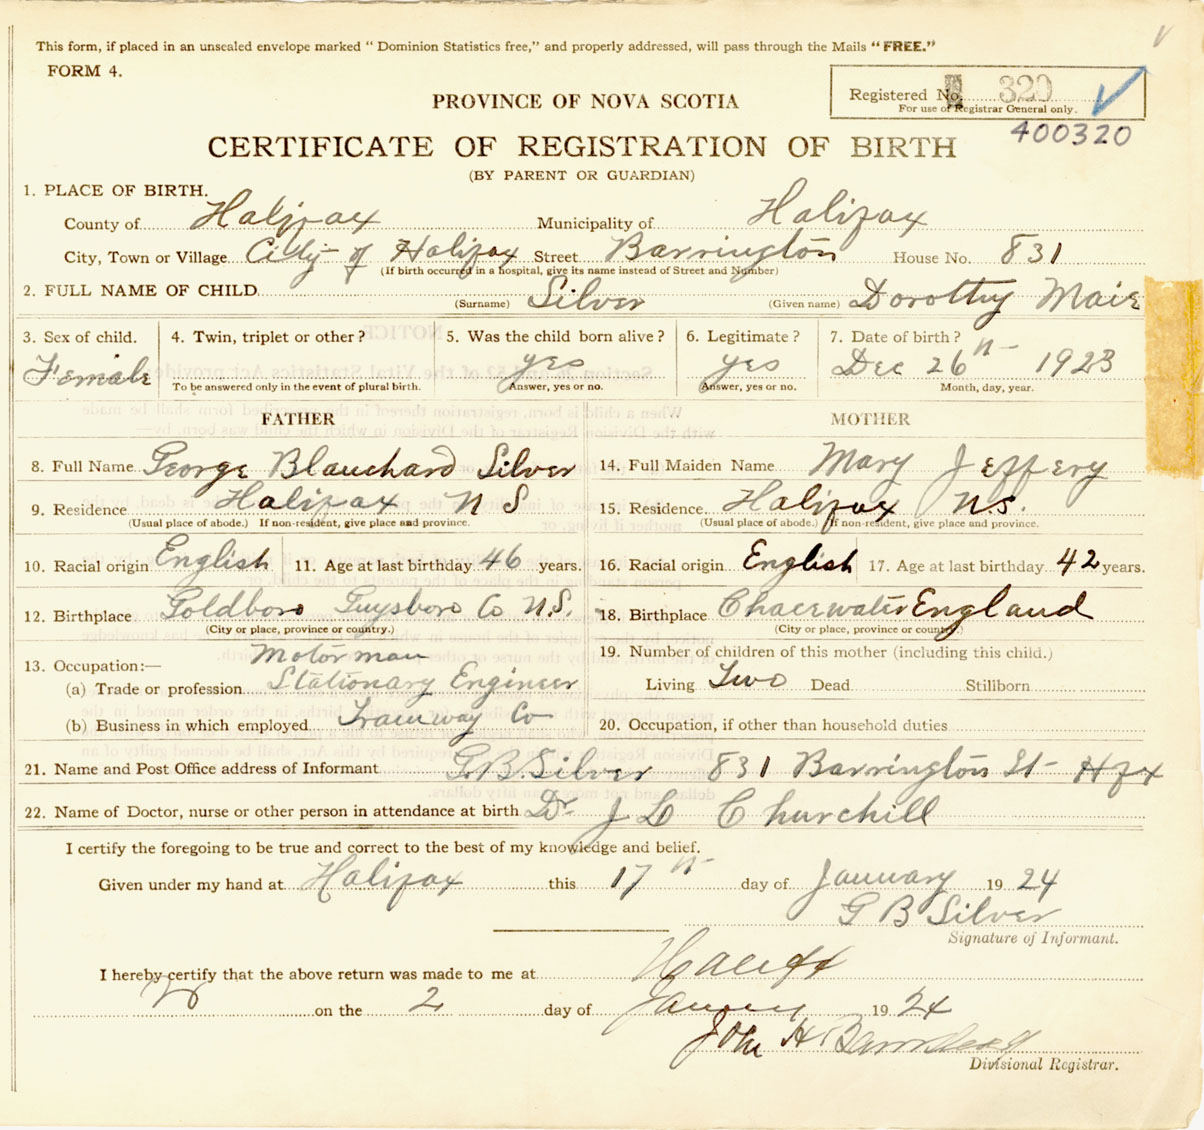 This form, if placed in an unsealed envelope marked “ Dominion Statistics free,” and properly addressed, will pass through the Mails “ FREE.”
FORM 4.
Registered No. 320
For use of Registrar General only.
400320
PROVINCE OF NOVA SCOTIA
CERTIFICATE OF REGISTRATION OF BIRTH
(BY PARENT OR GUARDIAN)
1. PLACE OF BIRTH.
County of Halifax Municipality of Halifax
City, Town or Village City of Halifax Street Barrington House No. 831
(If birth occurred in a hospital, give its name instead of Street and Number)
2. FULL NAME OF CHILD (Surname) Silver (Given name) Dorothy Maie
3. Sex of child. 4. Twin, triplet or other ? 5. Was the child born alive ? 6. Legitimate ? 7. Date of birth ?
Female yes yes Dec 26th 1923
To be answered only in the event of plural birth. Answer, yes or no. Answer, yes or no. Month, day, year.
FATHER MOTHER
8. Full Name George Blanchard Silver 14. Full Maiden Name Mary Jeffery
9. Residence Halifax N S 15. Residence Halifax N.S.
(Usual place of abode.) If non-resident, give place and province. (Usual place of abode.) If non-resident, give place and province.
10. Racial origin English 11. Age at last birthday 46 years. 16. Racial origin English 17. Age at last birthday 42 years.
12. Birthplace Goldboro Guysboro Co N.S. 18. Birthplace Chacewater England
(City or place, province or country.) (City or place, province or country.)
13. Occupation:— Motorman 19. Number of children of this mother (including this child.)
(a) Trade or profession Stationary Engineer Living Two Dead Stillborn
(b) Business in which employed Tramway Co 20. Occupation, if other than household duties
21. Name and Post Office address of Informant G.B. Silver 831 Barrington St Hfx
22. Name of Doctor, nurse or other person in attendance at birth Dr. J L Churchill
I certify the foregoing to be true and correct to the best of my knowledge and belief.
Given under my hand at Halifax this 17th day of January 19 24
G B Silver
Signature of Informant.
I hereby certify that the above return was made to me at
on the 2 day of January 19 24
John H
Divisional Registrar.